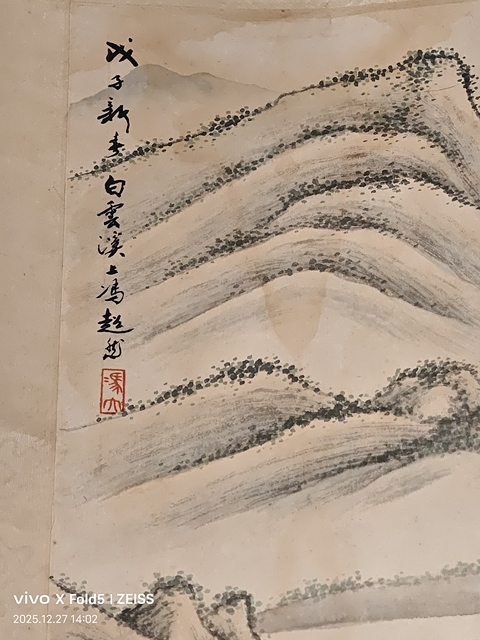 戊子新春白雲溪上馮超然
馮大
vivo X Fold5 | ZEISS
2025.12.27 14:02